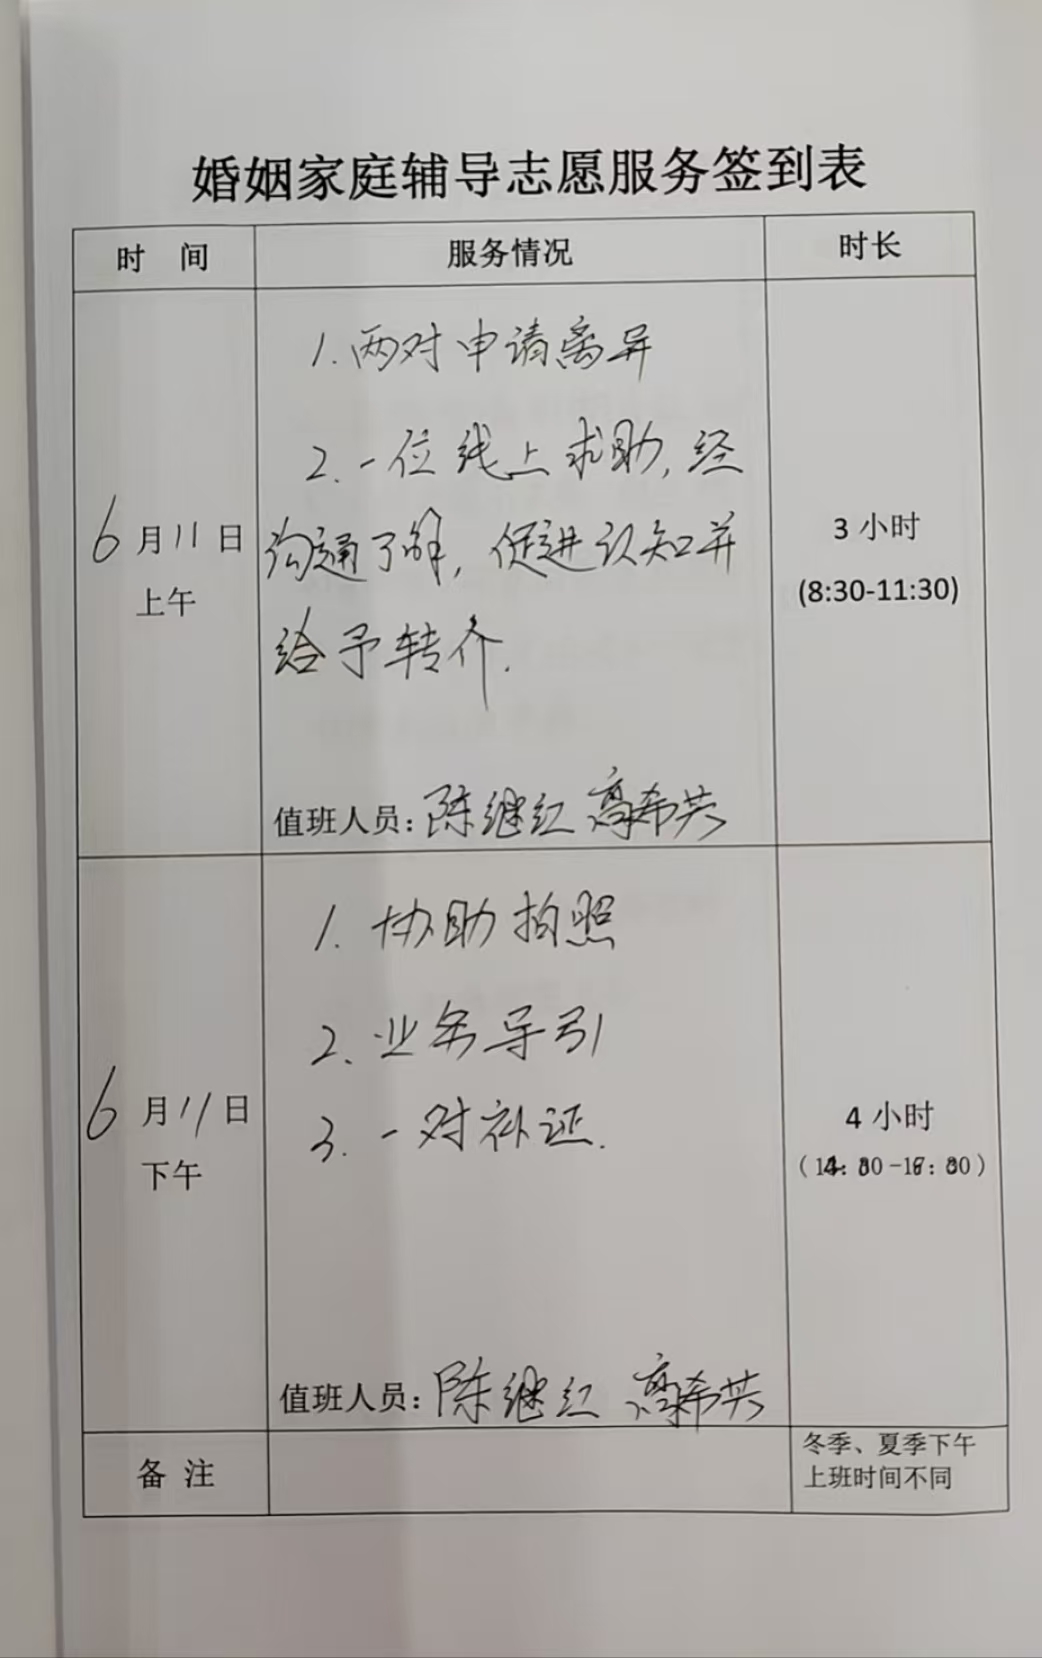 婚姻家庭辅导志愿服务签到表
时 间 服务情况 时长
1.两对申请离异
2.一位线上求助,经
沟通了解,促进认知并
给予转介.
6月11日
上午
3小时
(8:30-11:30)
值班人员:陈继红 高希共
1.协助拍照
2.业务导引
3.一对补证.
6月11日
下午
4小时
值班人员:陈继红 高希共
备 注
冬季、夏季下午
上班时间不同